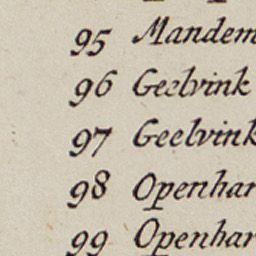 95 Mandem
96 Geelvink
97 Geelvink
98 Openhar
99 Openhar